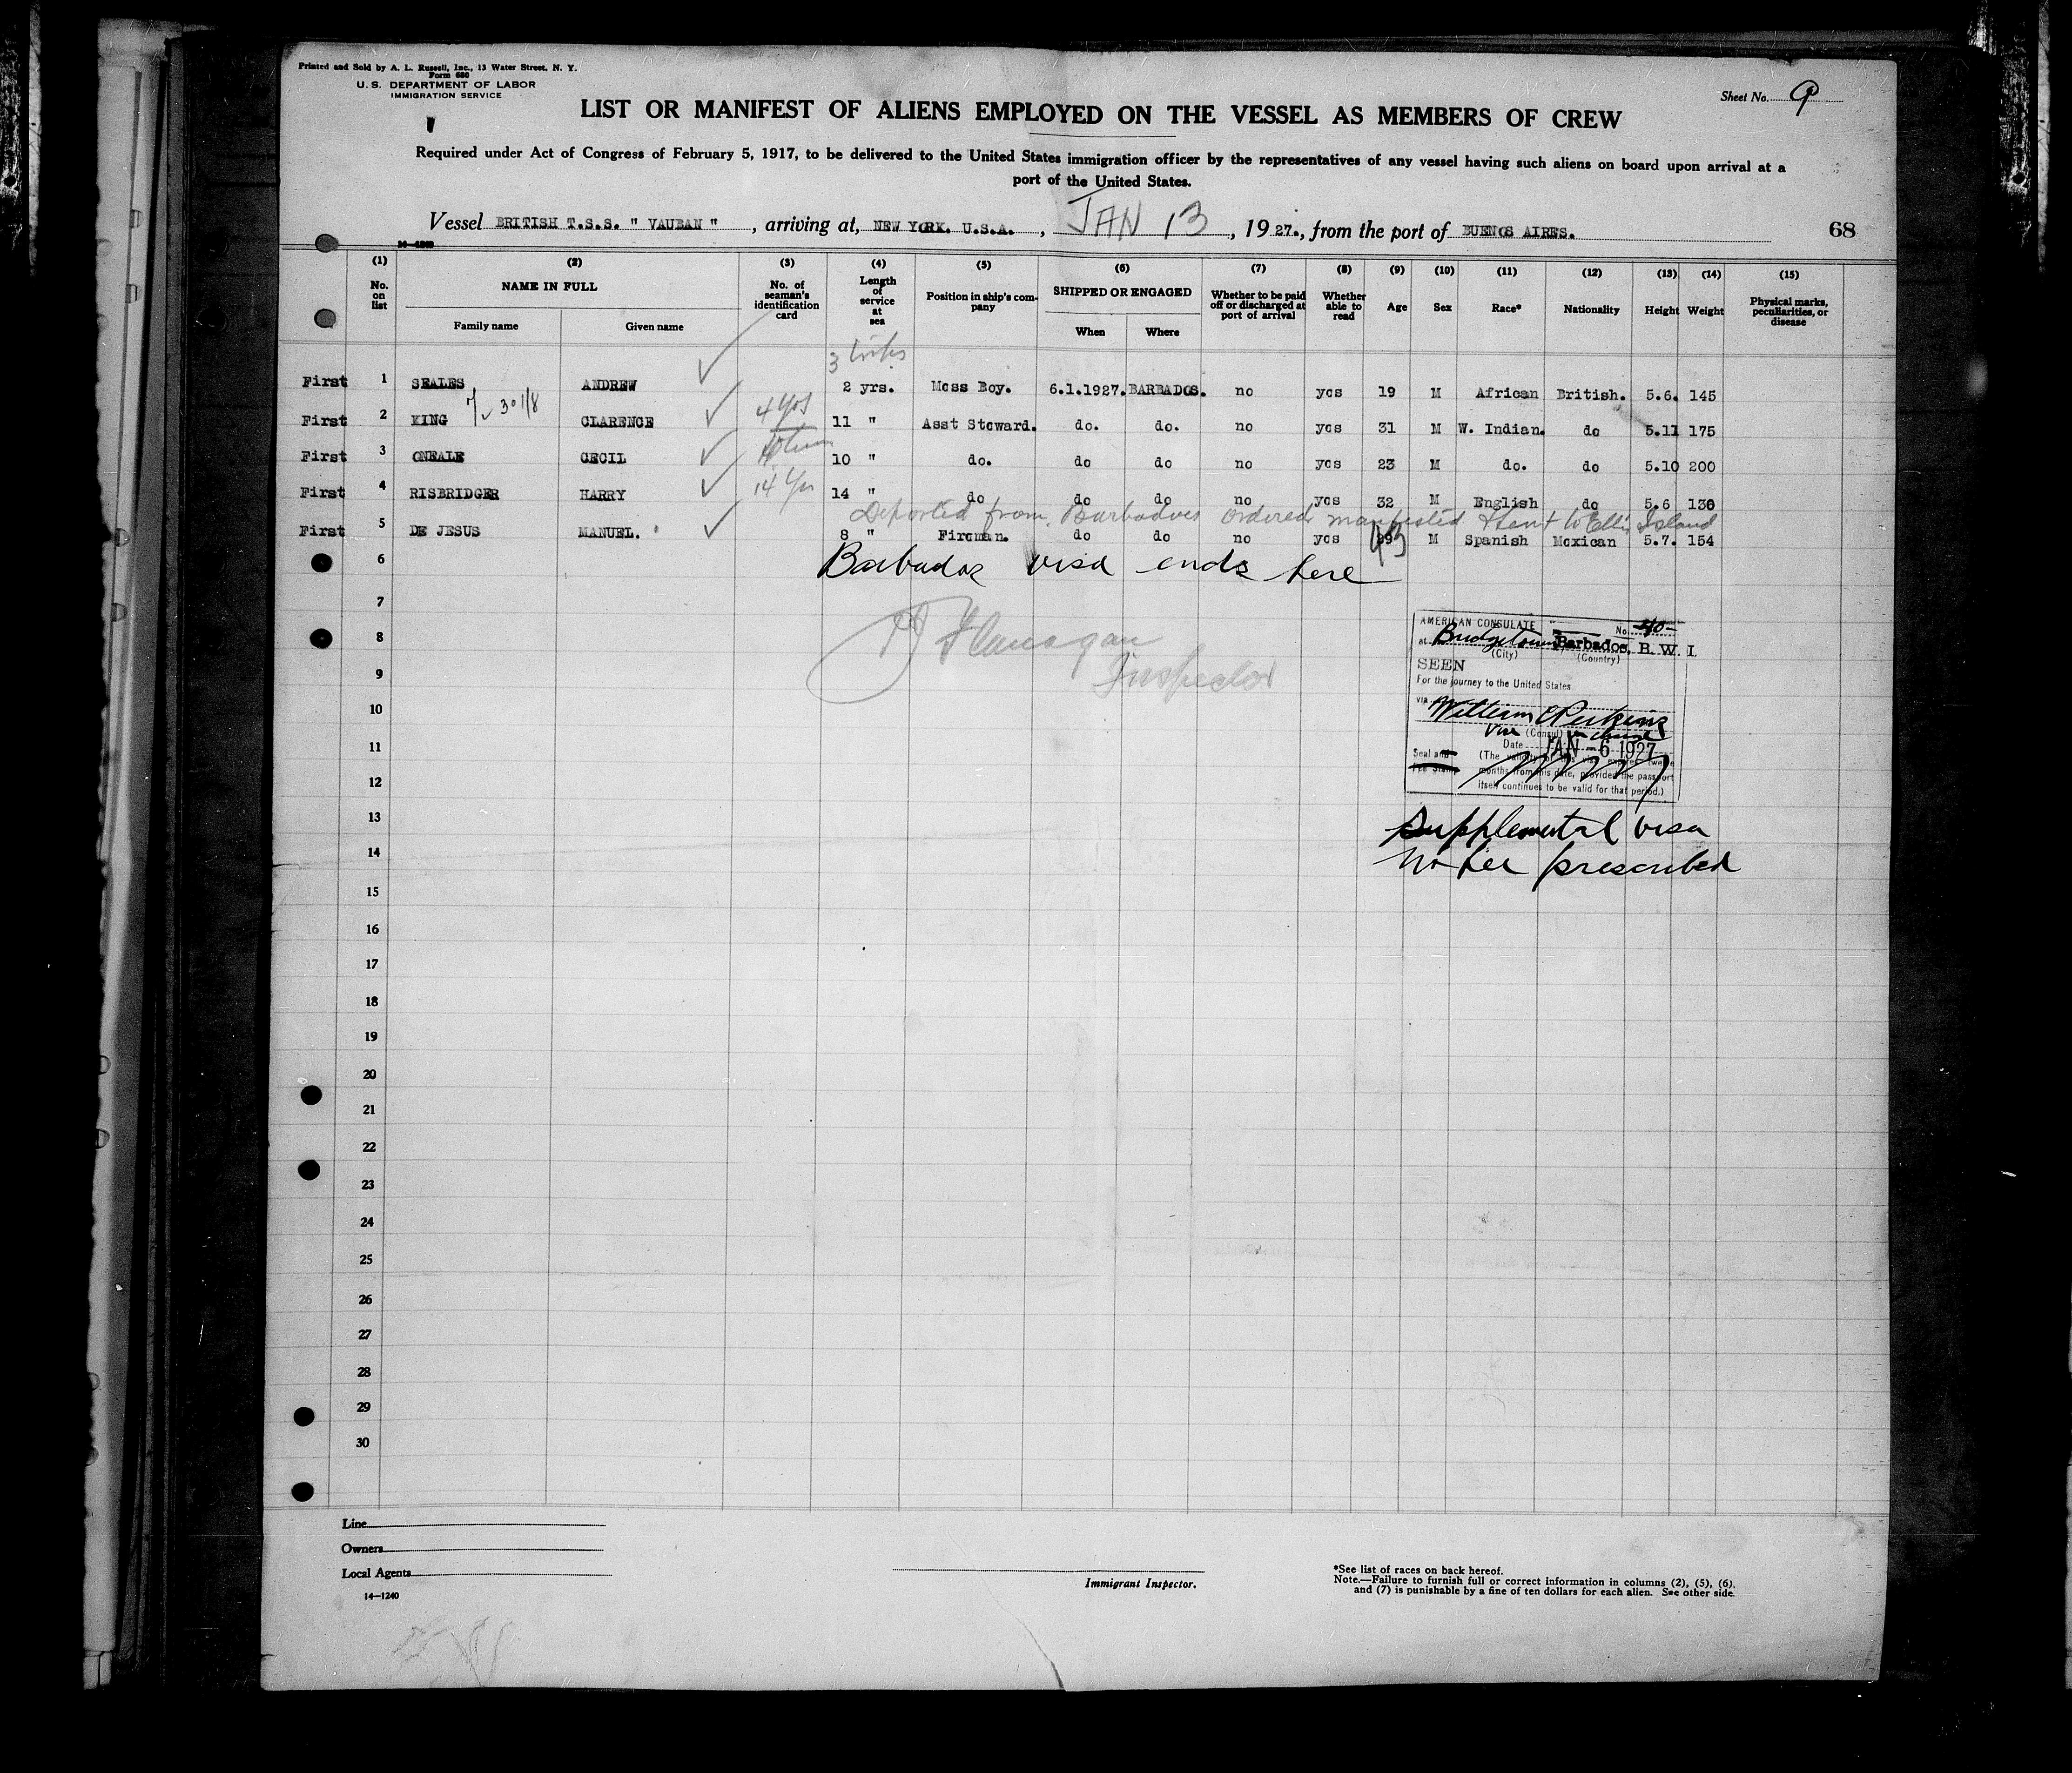 Printed and Sold by A. L. Russell, Inc., 13 Water Street, N. Y.
Form 680
U. S. DEPARTMENT OF LABOR
IMMIGRATION SERVICE
Sheet No. 9
LIST OR MANIFEST OF ALIENS EMPLOYED ON THE VESSEL AS MEMBERS OF CREW
Required under Act of Congress of February 5, 1917, to be delivered to the United States immigration officer by the representatives of any vessel having such aliens on board upon arrival at a
port of the United States.
Vessel BRITISH T.S.S. " VAUBAN " , arriving at, NEW YORK. U.S.A. , JAN 13 , 1927., from the port of BUENOS AIRES. 68
(1) (2) (3) (4) (5) (6) (7) (8) (9) (10) (11) (12) (13) (14) (15)
No. on list NAME IN FULL No. of seaman's identification card Length of service at sea Position in ship's company SHIPPED OR ENGAGED Whether to be paid off or discharged at port of arrival Whether able to read Age Sex Race* Nationality Height Weight Physical marks, peculiarities, or disease
Family name Given name When Where
3
First 1 SEALES ANDREW 2 yrs. Mess Boy. 6.1.1927. BARBADOS. no yes 19 M African British. 5.6. 145
301/8 4 yrs
First 2 KING CLARENCE 11 " Asst Steward. do. do. no yes 31 M W. Indian. do 5.11 175
First 3 ONEALE CECIL 10 " do. do do no yes 23 M do. do 5.10 200
14 yrs
First 4 RISBRIDGER HARRY 14 " do do do no yes 32 M English do 5.6 130
Deported from Barbadoes ordered manifested & sent to Ellis Island
First 5 DE JESUS MANUEL. 8 " Fireman. do do no yes 43 M Spanish Mexican 5.7. 154
6 Barbados visa ends here
7
8 Flanagan
9 Inspector
10
11
12
13
14
15
16
17
18
19
20
21
22
23
24
25
26
27
28
29
30
AMERICAN CONSULATE No. 40
at Bridgetown, Barbados, B. W. I.
(City) (Country)
SEEN
For the journey to the United States
via
William C Perkins
Vice (Consul) in charge
Date JAN -6 1927
Seal and
Fee Stamp
(The validity of this visa expires twelve
months from this date, provided the passport
itself continues to be valid for that period.)
Supplemental visa
No fee prescribed
Line
Owners
Local Agents
14—1240
Immigrant Inspector.
*See list of races on back hereof.
Note.—Failure to furnish full or correct information in columns (2), (5), (6),
and (7) is punishable by a fine of ten dollars for each alien. See other side.